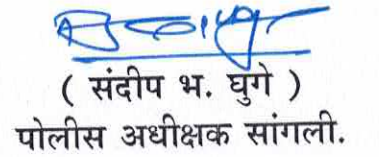 ( संदीप भ. घुगे )
पोलीस अधीक्षक सांगली.